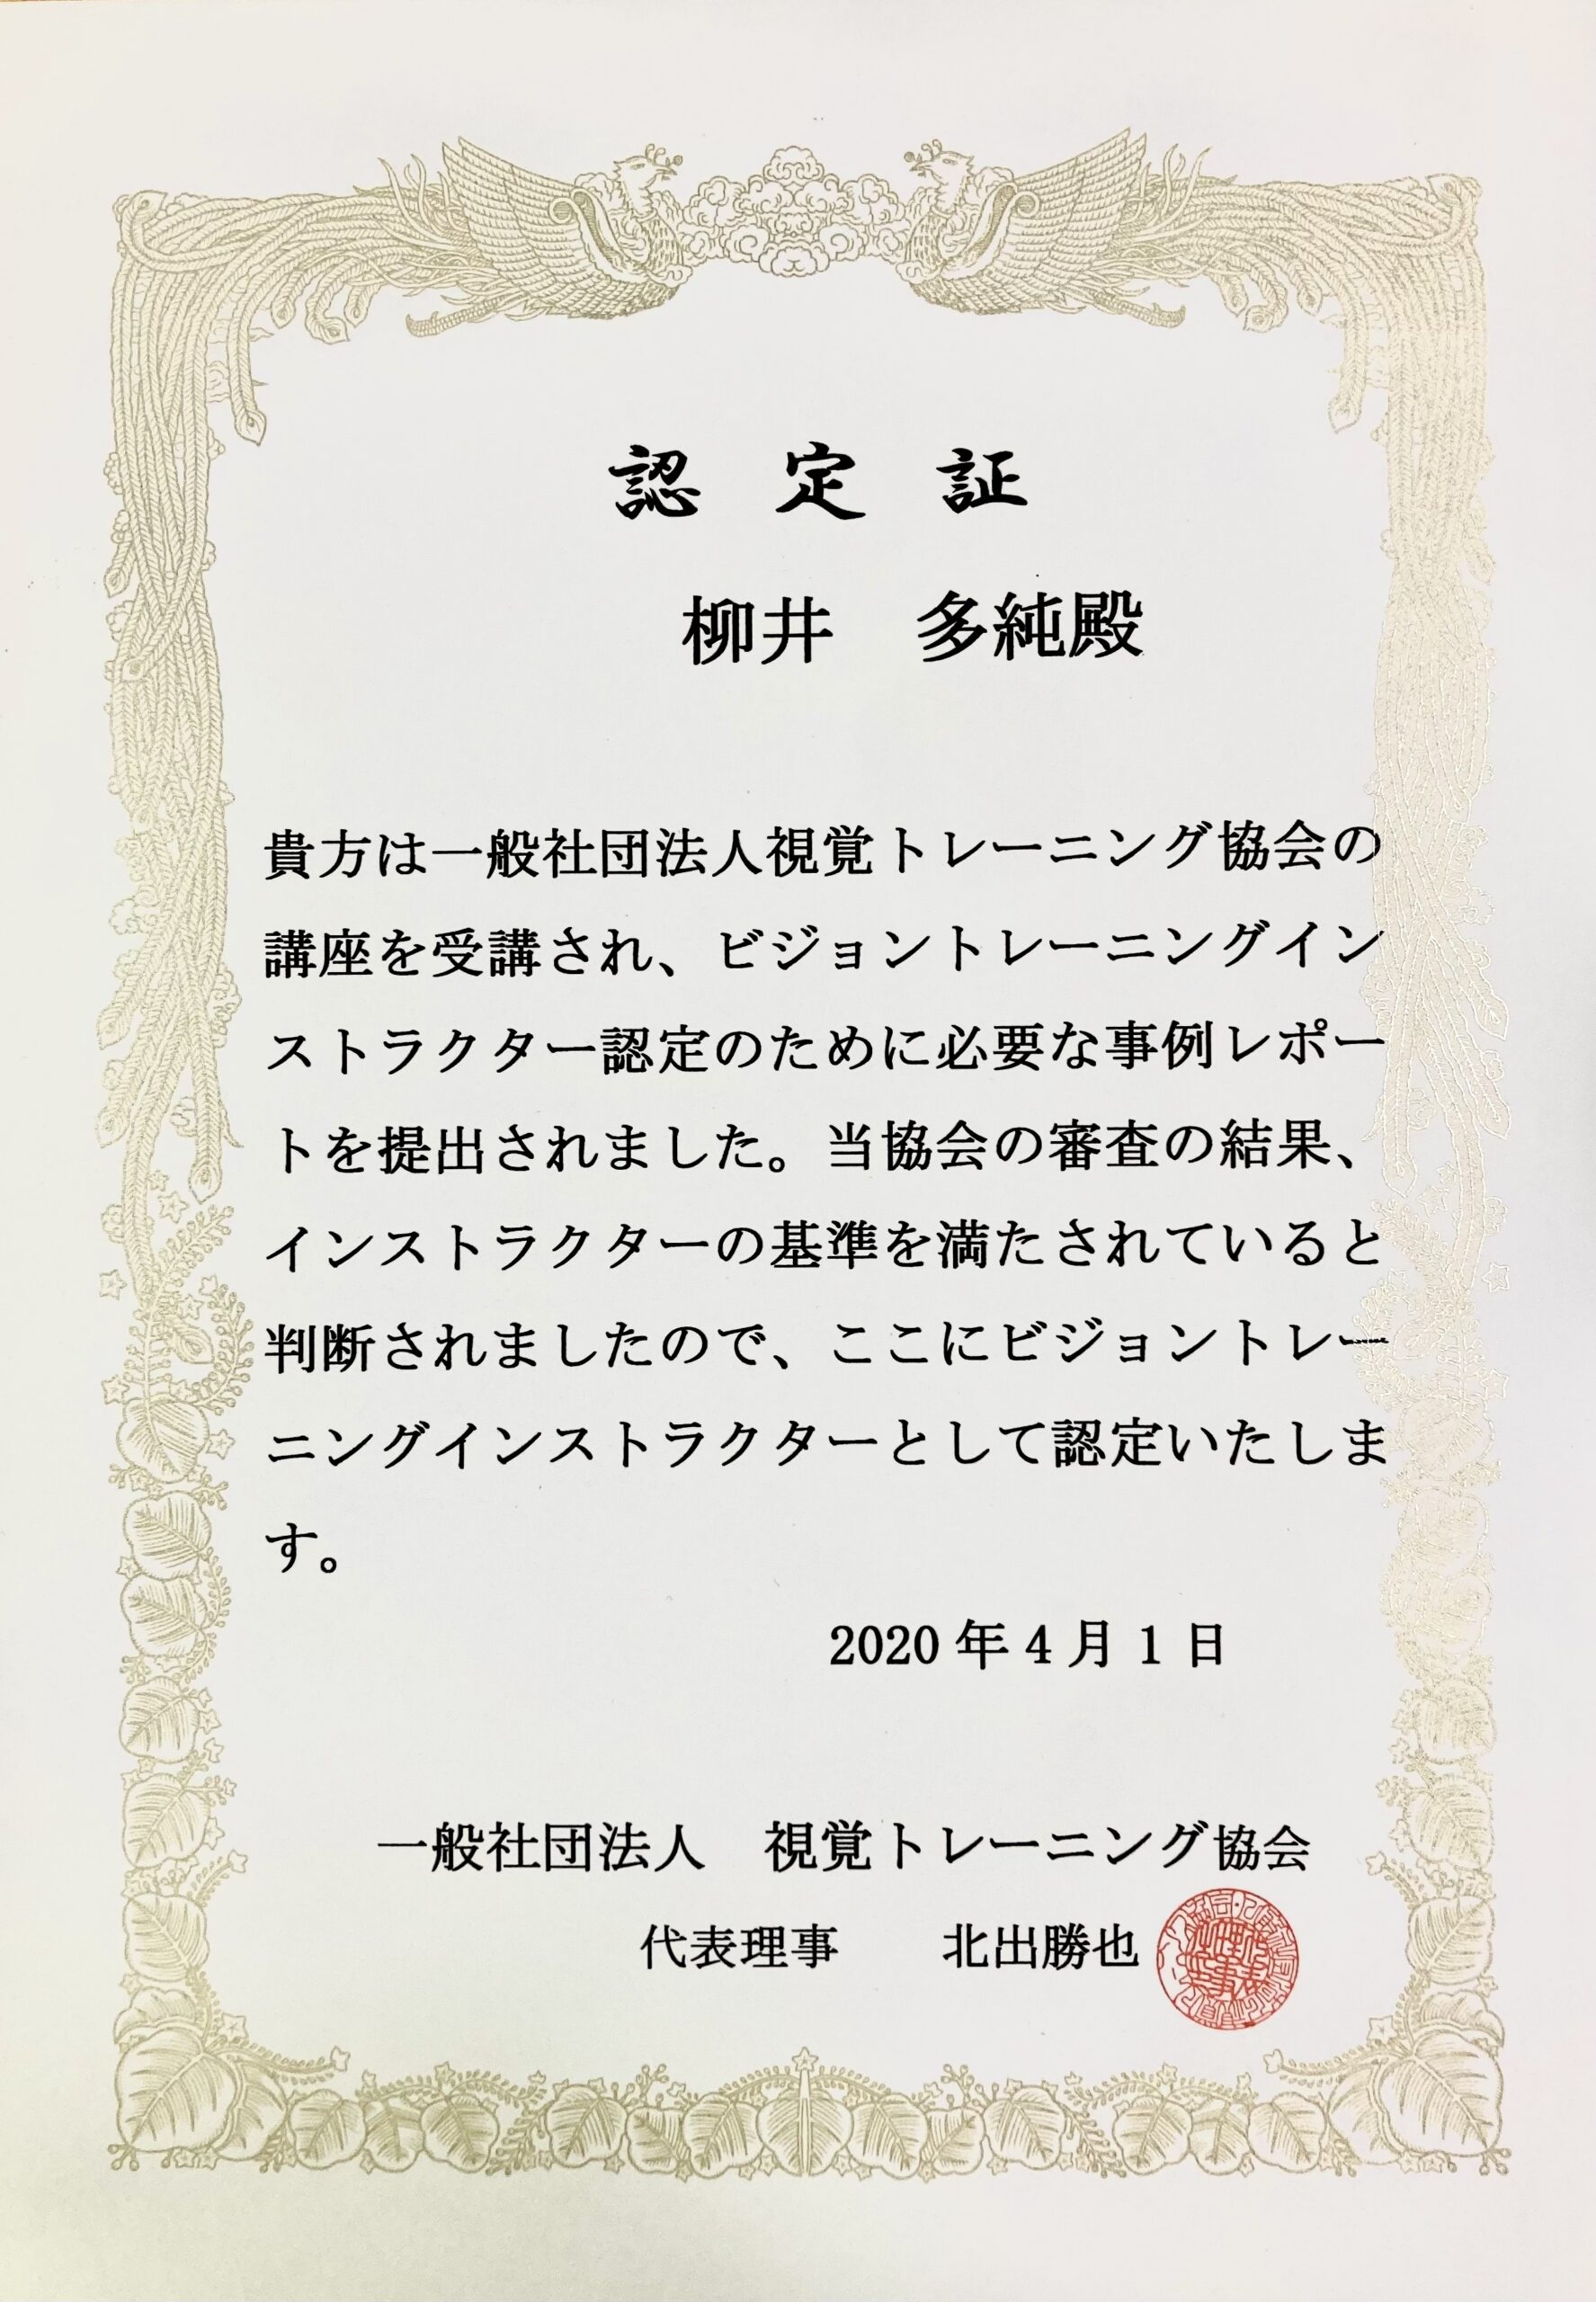 認定証
柳井　多純殿
貴方は一般社団法人視覚トレーニング協会の
講座を受講され、ビジョントレーニングイン
ストラクター認定のために必要な事例レポー
トを提出されました。当協会の審査の結果、
インストラクターの基準を満たされていると
判断されましたので、ここにビジョントレー
ニングインストラクターとして認定いたしま
す。
2020年4月1日
一般社団法人　視覚トレーニング協会
代表理事　　北出勝也